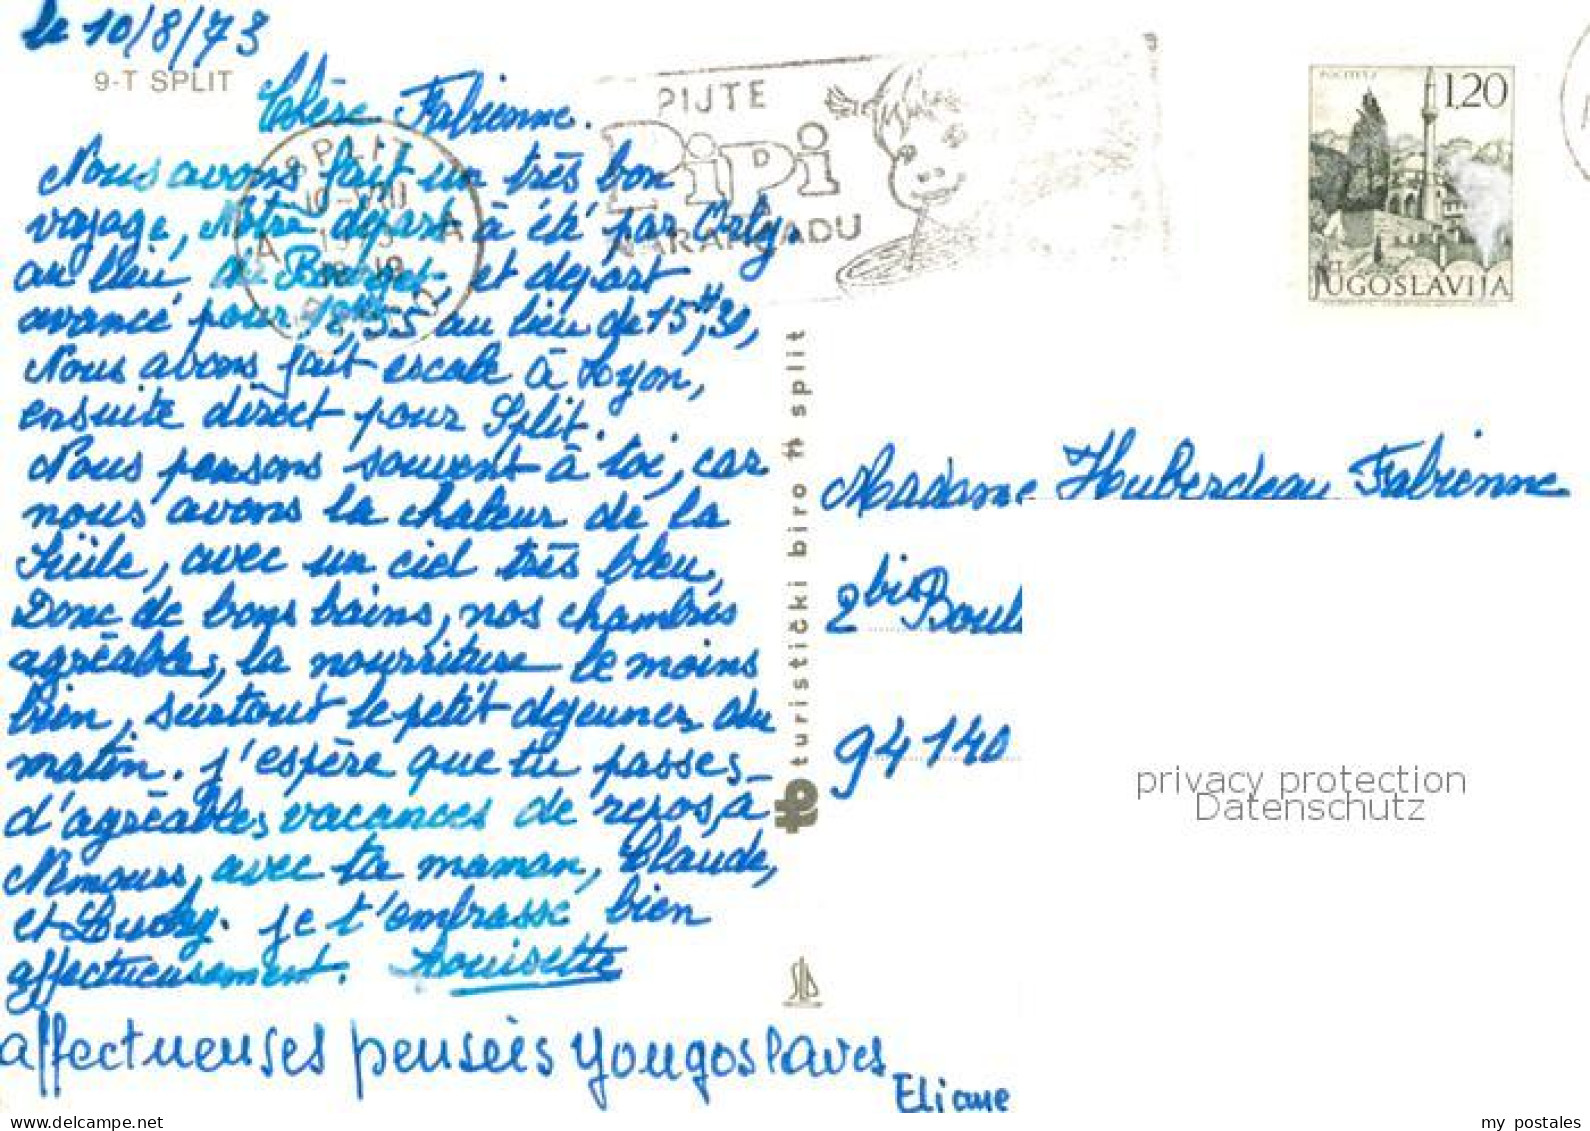 le 10/8/73
9-T SPLIT
Chère Fabienne.
Nous avons fait un très bon
voyage, Nôtre départ à été par Orly,
au lieu du Bourget et depart
avancé pour 12,55 au lieu de 15H,30,
Nous avons fait escale à Lyon,
ensuite direct pour Split.
Nous pensons souvent à toi, car
nous avons la chaleur de la
avec un ciel très bleu,
Donc de bons bains, nos chambres
agréables, la nourriture le moins
bien, surtout le petit dejeuner du
matin. j'espère que tu passes
d'agréables vacances de repos, à
Nemours, avec ta maman, Claude,
et je t'embrasse bien
affectueusement. Louisette
affectueuses pensées yougoslaves
Eliane
SPLIT
10-VIII
1973
PIJTE
PiPi
NARANČADU
POČITELJ
1,20
JUGOSLAVIJA
turistički biro tb split
tb
Madame Huberdeau Fabienne
2bis Boul
94140
privacy protection
Datenschutz
www.delcampe.net
my_postales